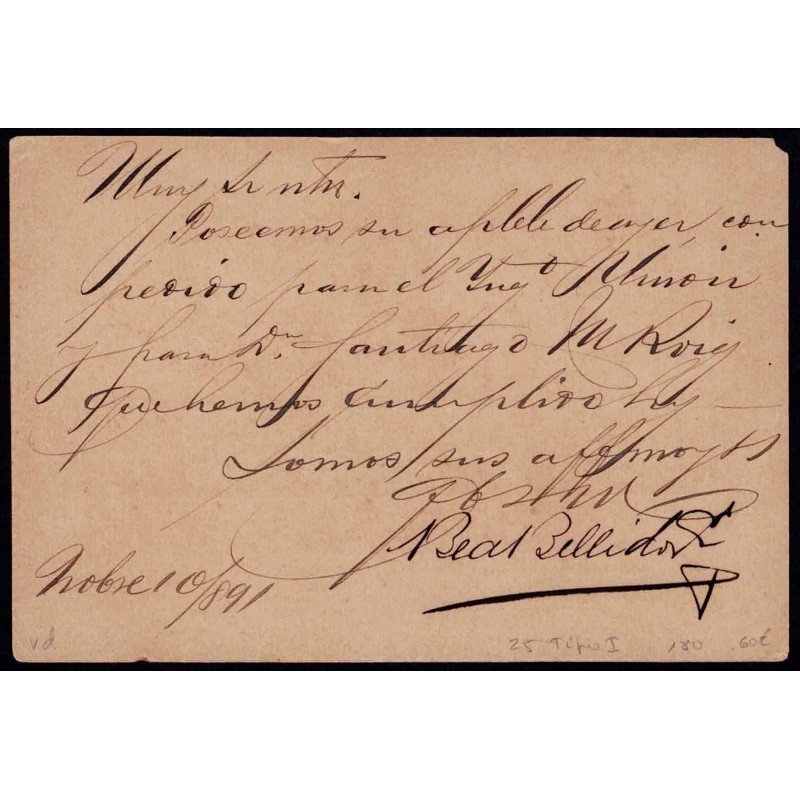 Muy Sr ntro.
Poseemos su aptble de ayer, con
pedido para el Yngo
y para Dn. Santiago M Roig
que hemos cumplido hy
Somos sus affmos
Beal Bellido
Nobre 10/891
vd 25 Tipo I 180 60€